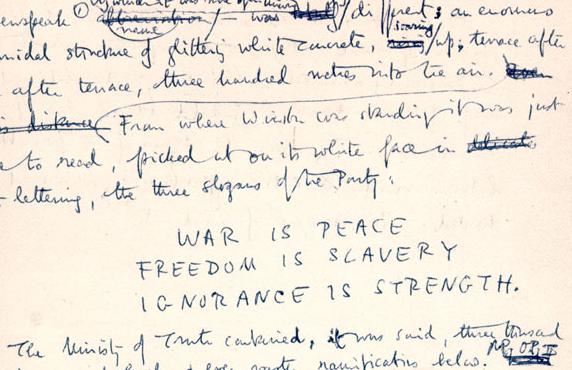 enspeak
name was different: an enormous
midal structure of glittering white concrete, soaring up, terrace after
after terrace, three hundred metres into the air.
distance From where Winston was standing it was just
e to read, picked out on its white face in
lettering, the three slogans of the Party:
WAR IS PEACE
FREEDOM IS SLAVERY
IGNORANCE IS STRENGTH.
The Ministry of Truth contained, it was said, three thousand
ramifications below.